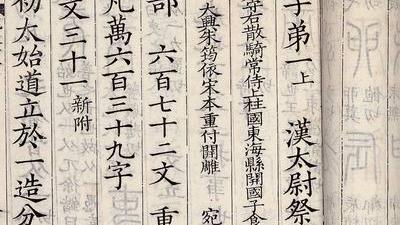 字弟一上 漢太尉祭
守右散騎常侍上柱國東海縣開國子食
大興朱筠依宋本重付開雕 宛
部 六百七十二文 重
凡萬六百三十九字
文三十一 新附
初太始道立於一造分